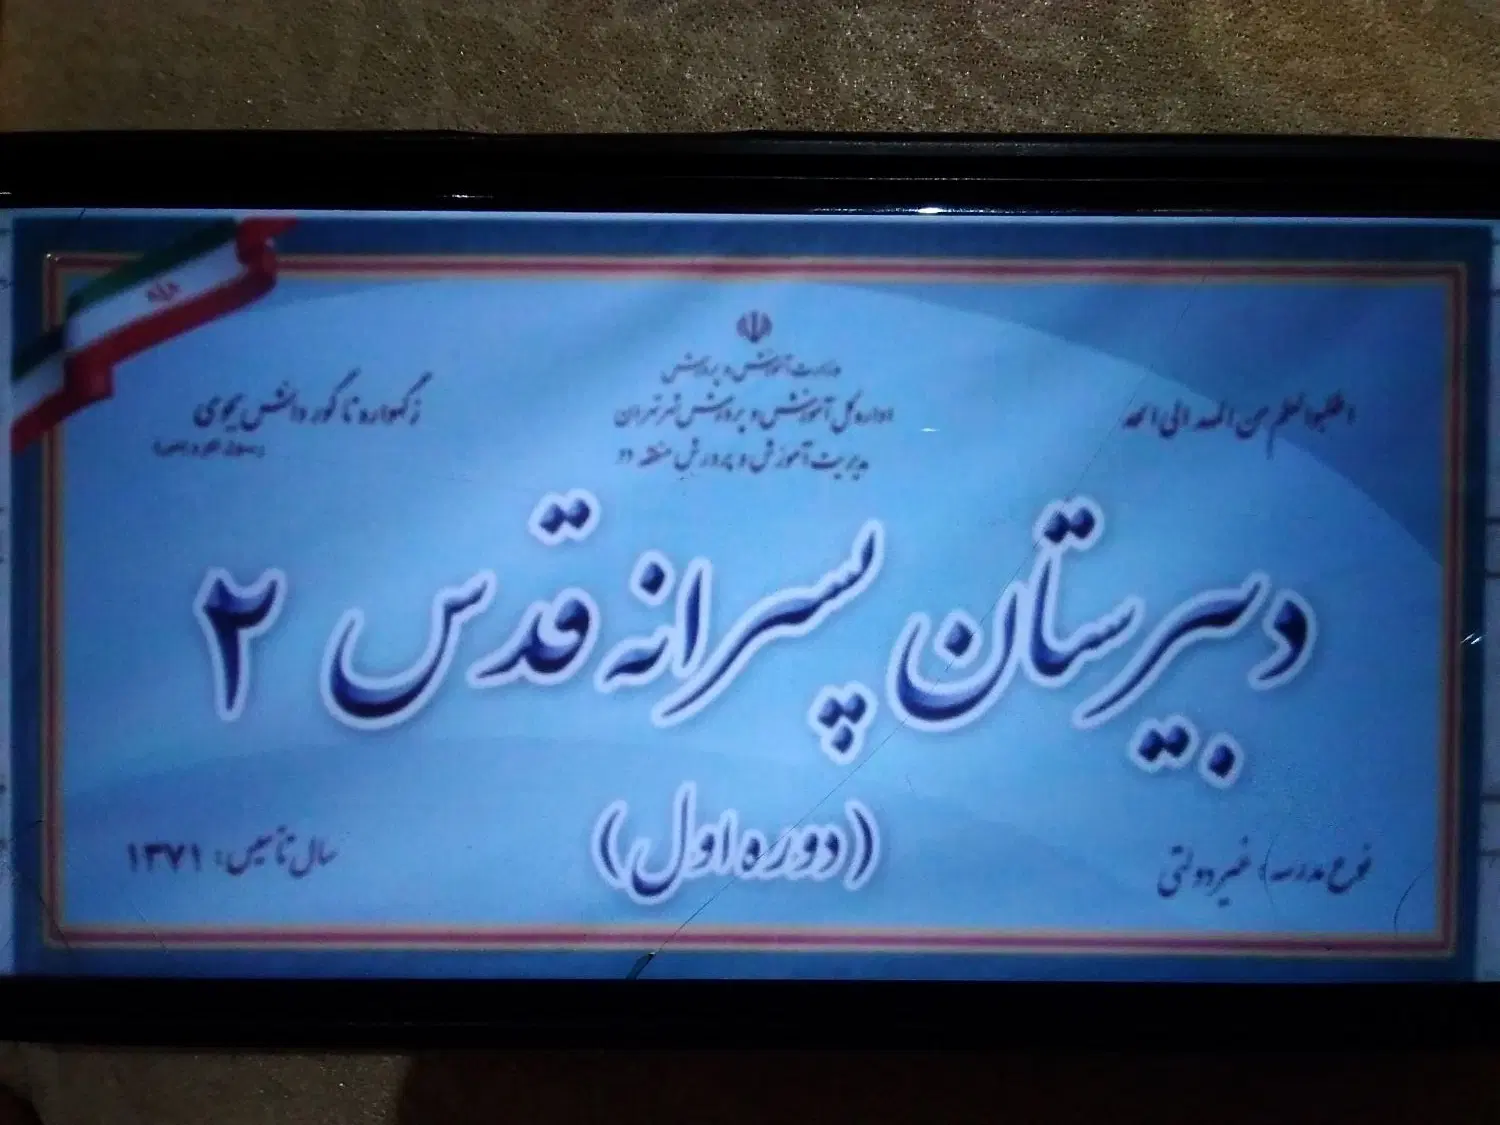 وزارت آموزش و پرورش
اداره کل آموزش و پرورش شهر تهران
مدیریت آموزش و پرورش منطقه دو
اطلبوا العلم من المهد الی الحد
ز گهواره تا گور دانش بجوی
دبیرستان پسرانه قدس ۲
(دوره اول)
نوع مدرسه: غیر دولتی
سال تأسیس: ۱۳۷۱